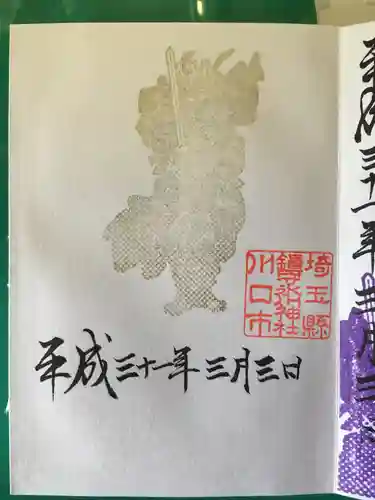 埼玉縣
鎮守氷川神社
川口市
平成三十一年三月三日
平成三十一年三月三